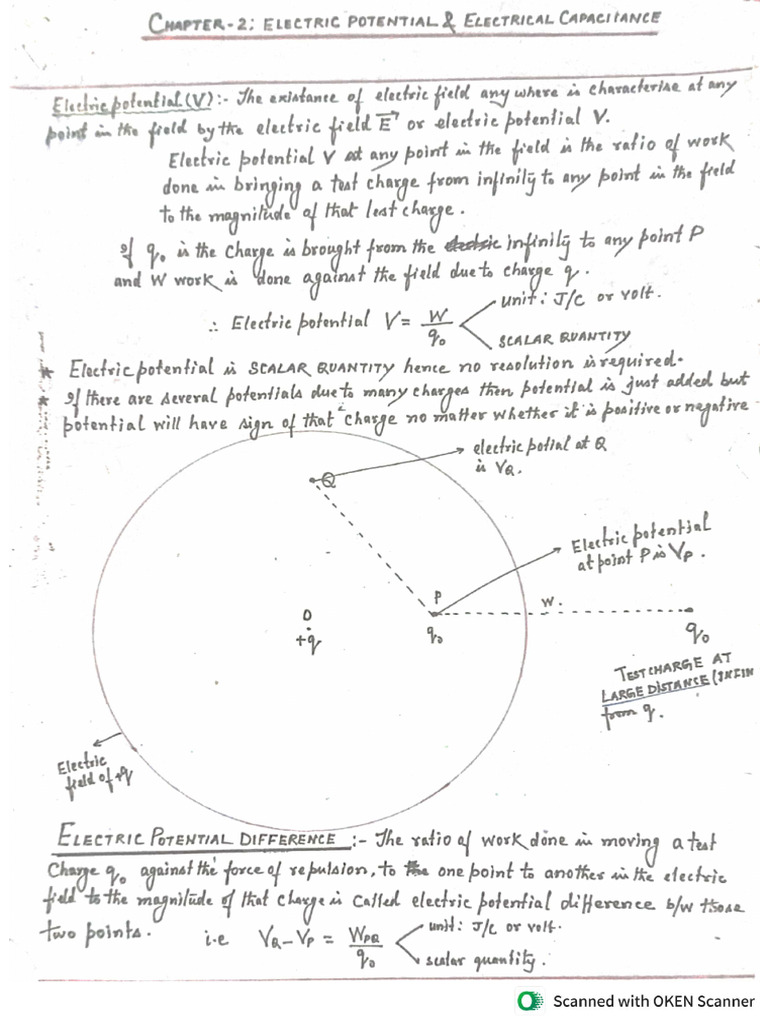 CHAPTER-2: ELECTRIC POTENTIAL & ELECTRICAL CAPACITANCE
Electric potential (V) :- The existance of electric field any where is characterise at any
point in the field by the electric field E→ or electric potential V.
Electric potential V at any point in the field is the ratio of work
done in bringing a test charge from infinity to any point in the field
to the magnitude of that test charge.
If q₀ is the charge is brought from the infinity to any point P
and W work is done against the field due to charge q.
∴ Electric potential V = W/q₀
unit: J/C or volt.
SCALAR QUANTITY
* Electric potential is SCALAR QUANTITY hence no resolution is required.
* If there are several potentials due to many charges then potential is just added but
potential will have sign of that charge no matter whether it is positive or negative
electric potial at Q
is VQ.
Q
Electric potential
at point P is VP.
P
W.
O
+q
q₀
q₀
TEST CHARGE AT
LARGE DISTANCE (INFIN
from q.
Electric
field of +q
ELECTRIC POTENTIAL DIFFERENCE :- The ratio of work done in moving a test
Charge q₀ against the force of repulsion, to the one point to another in the electric
field to the magnitude of that charge is called electric potential difference b/w those
two points. i.e VQ - VP = WPQ/q₀
unit: J/C or volt.
scalar quantity.
Scanned with OKEN Scanner